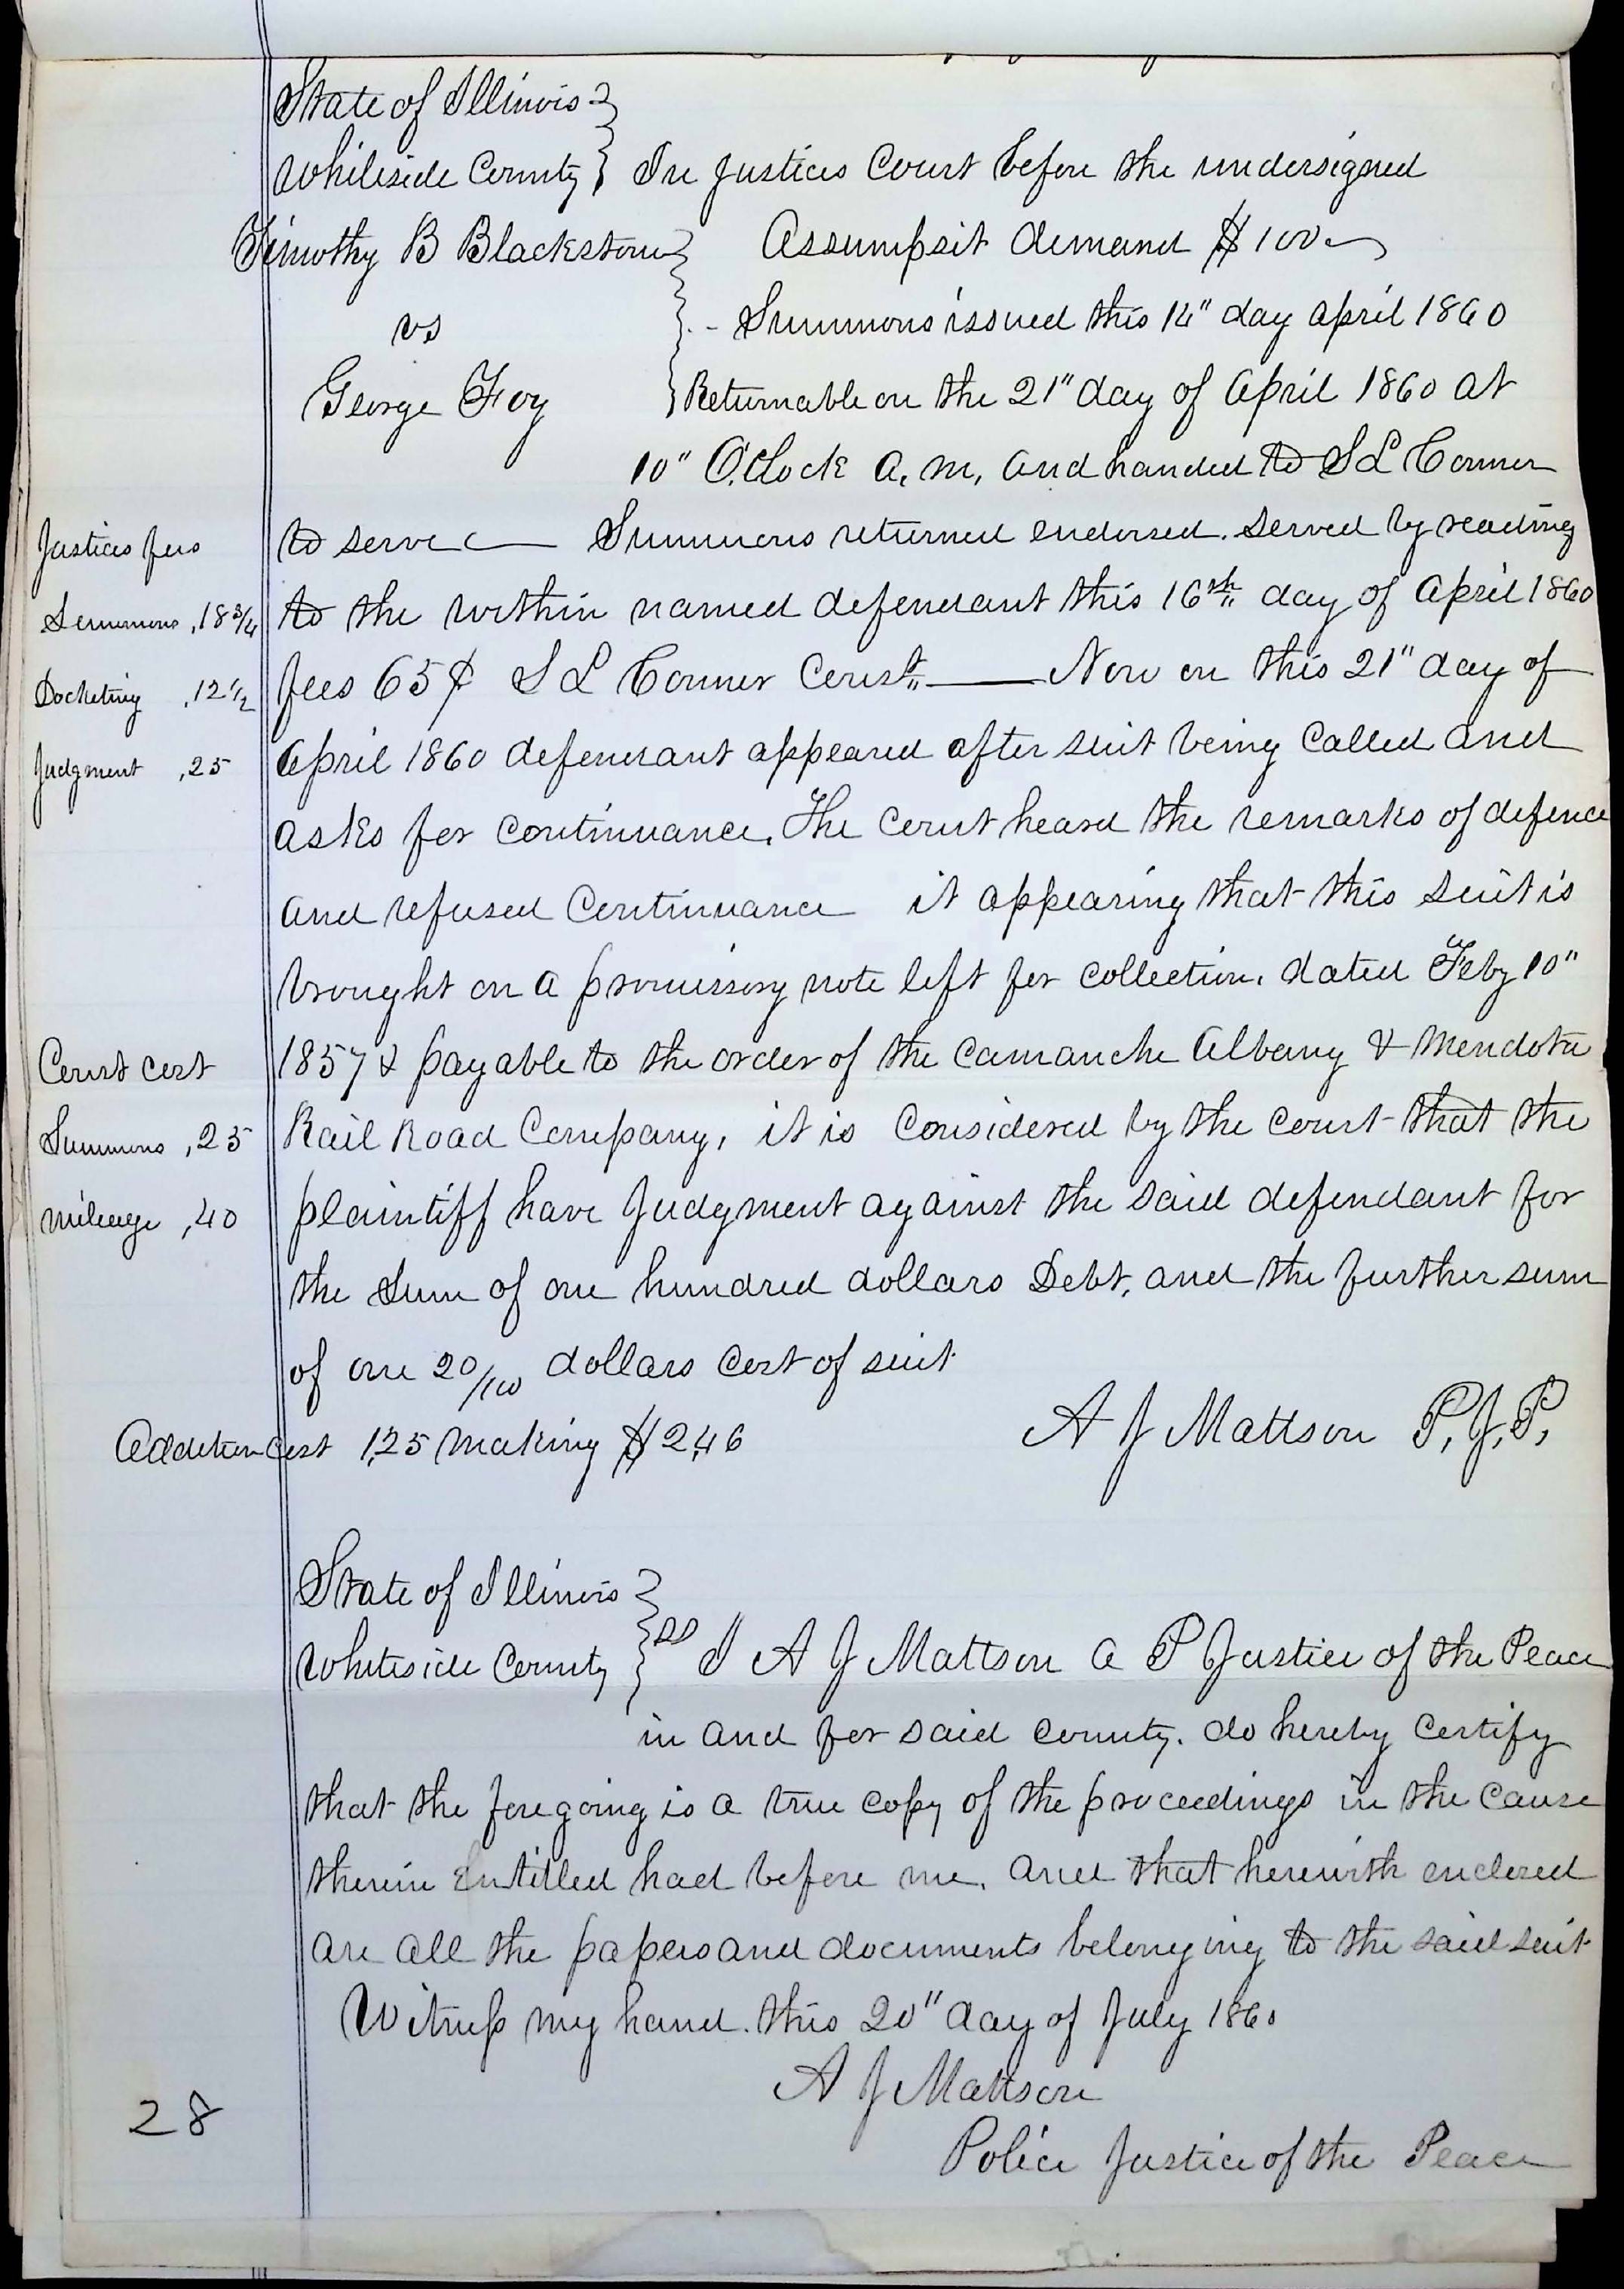 State of Illinois }
Whiteside County } In Justices Court before the undersigned
Timothy B Blackstone } Assumpsit demand $100
vs } Summons issued this 14" day april 1860
George Foy } Returnable on the 21" day of April 1860 at
10" O.Clock a, m, and handed to S L Conner
Justices fees
to serve Summons returned endorsed. Served by reading
Summons ,18 3/4
to the within named defendant this 16th day of April 1860
Docketing ,12 1/2
fees 65¢ S L Conner Const. Now on this 21" day of
Judgment ,25
April 1860 defendant appeared after suit being Called and
asks for continuance. The Court heard the remarks of defence
and refused Continuance it appearing that this suit is
brought on a promissory note left for collection. dated Feby 10"
1857 & payable to the order of the Camanche Albany & Mendota
Court cost
Rail Road Company, it is Considered by the Court that the
Summons ,25
plaintiff have Judgment against the said defendant for
mileage ,40
the Sum of one hundred dollars Debt, and the further sum
of one 20/100 dollars Cost of suit
Addition Cost 1,25 making $2,46
A J Mattson P, J, P,
State of Illinois }
Whiteside County } SS I A J Mattson a P Justice of the Peace
in and for said County. do hereby Certify
that the foregoing is a true copy of the proceedings in the Cause
therein Entitled had before me. and that herewith enclosed
are all the papers and documents belonging to the said suit
Witness my hand. this 20" day of July 1860
A J Mattson
28
Police Justice of the Peace